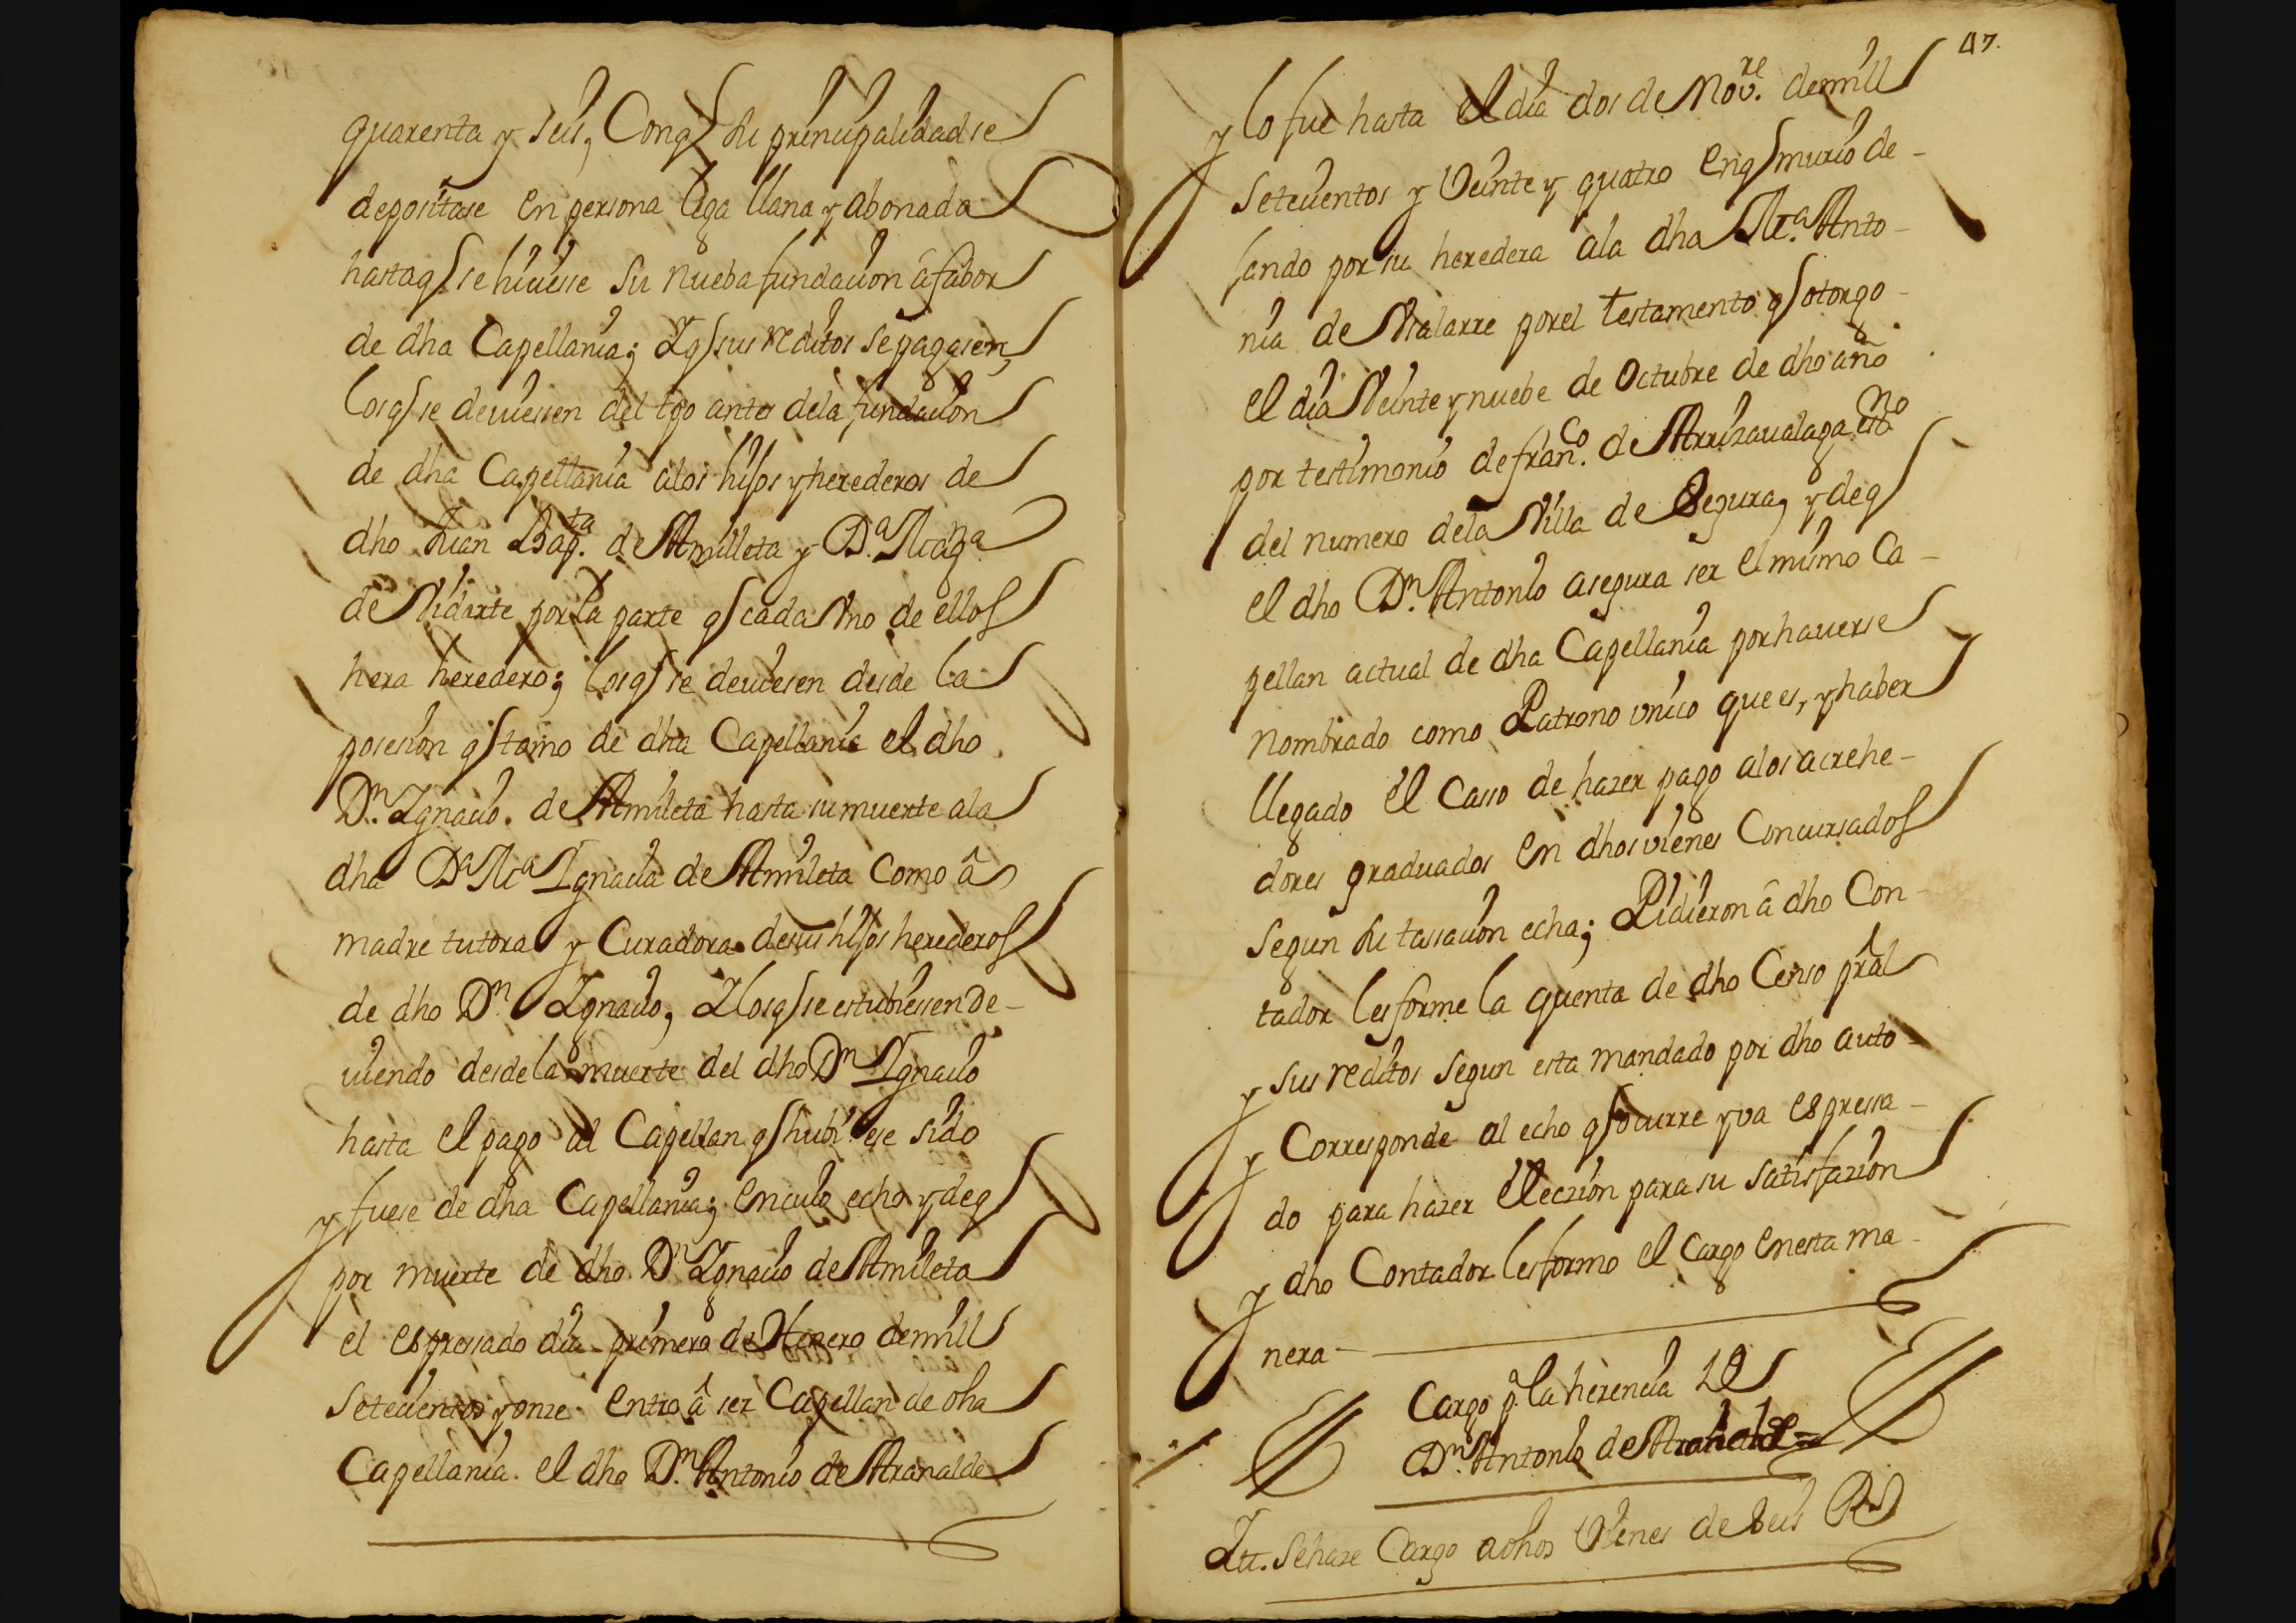 quarenta y seis, Conq su prinzipalidad se
depositase En persona lega llana y abonada
hasta q se hiciesse su nueba fundacion â fabor
de dha Capellania; Y q sus reditos se pagasen,
los q se deviessen del tpo antes dela fundacion
de dha Capellania alos hijos y herederos de
dho Juan Bap.ta de Amilleta y D.a Mag.na
de Vidarte por la parte q cada Vno de ellos
hera heredero; los q se deviesen desde la
posesion q tomo de dha Capellania el dho
D.n Ygnacio. de Amileta hasta su muerte ala
dha D.a M.a Ignacia de Amileta Como â
madre tutora y Curadora de sus hijos herederos
de dho D.n Ygnacio, Y los q se estubiessen de-
viendo desde la muerte del dho D.n Ignacio
hasta el pago al Capellan q hubiese sido
y fuese de dha Capellania; En cuio echo y de q
por muerte de dho D.n Ygnacio de Amileta
el espresado dia primero de Henero de mill
Setecientos y onze Entro â ser Capellan de dha
Capellania el dho D.n Antonio de Aranalde
47.
y lo fue hasta el dia dos de Nov.re de mill
Setecientos y Veinte y quatro En q murio de-
jando por su heredera ala dha M.a Anto-
nia de Malarre por el testamento q otorgo
el dia Veinte y nuebe de Octubre de dho año
por testimonio de fran.co de Arrizavalaga essno
del numero dela Villa de Segura, y de q
el dho D.n Antonio asegura ser el mismo Ca-
pellan actual de dha Capellania por haverse
nombrado como Patrono vnico que es, y haber
llegado el Casso de hazer pago alos acrehe-
dores graduados En dhos vienes Concursados
segun su tassacion echa; Pidieron â dho Con-
tador les forme la quenta de dho Censo pral
y sus reditos segun esta mandado por dho auto
y Corresponde al echo q ocurre y va espressa-
do para hazer Eleczion para su satisfazion
y dho Contador les formo el Cargo En esta ma-
nera-
Cargo p.a la herencia de
D.n Antonio de Aranalde
Itt. Se haze Cargo a dhos Vienes de seis Rs